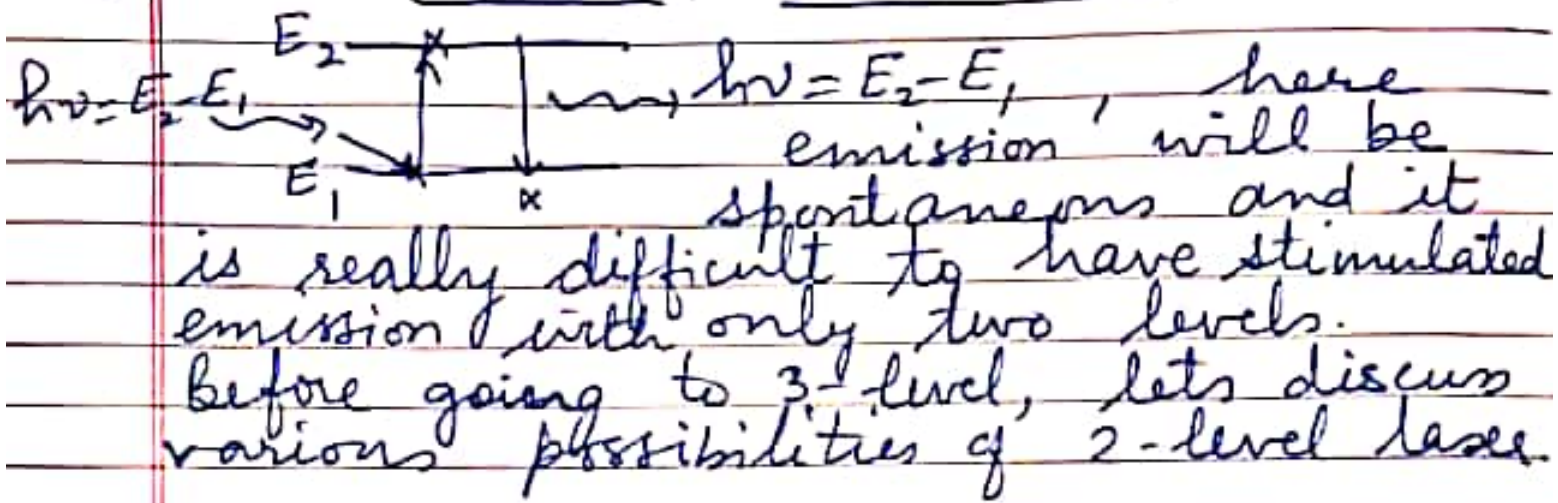 E₂
hν = E₂-E₁ hν = E₂-E₁ , here
emission will be
E₁
spontaneous and it
is really difficult to have stimulated
emission with only two levels.
Before going to 3-level, lets discuss
various possibilities of 2-level laser.